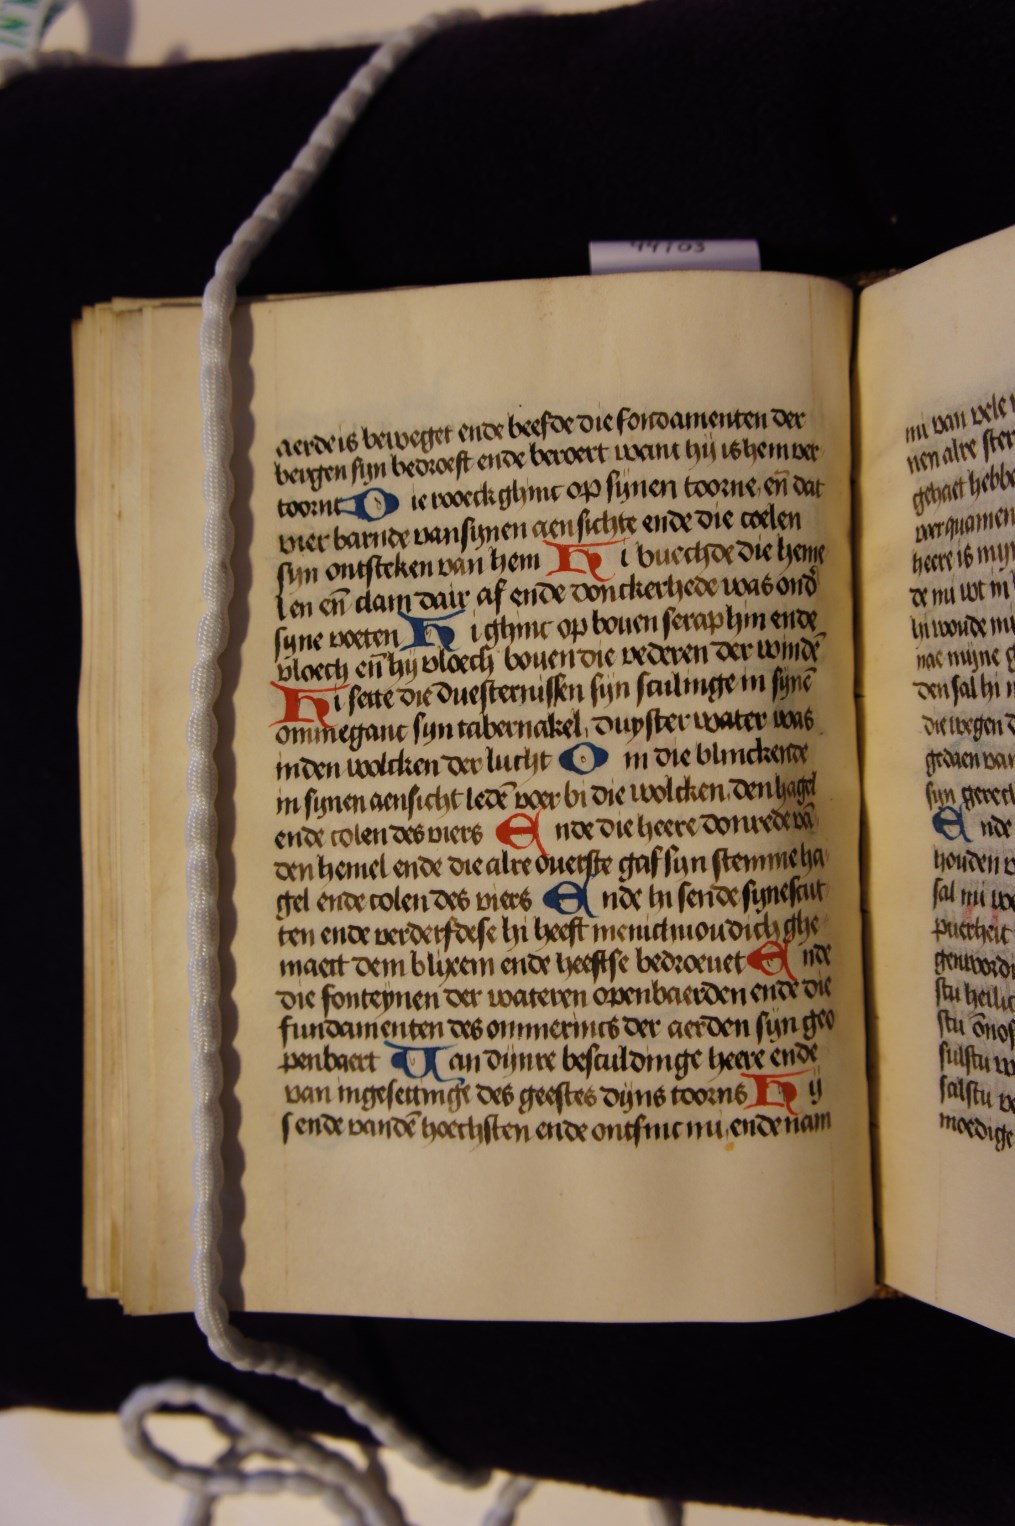 44703
aerde is beweget ende beefde die fondamenten der
bergen sijn bedroeft ende beroert want hij is hem ver
toornt Die rooeck ghinc op sijnen toorne, en̄ dat
vier barnde van sijnen aensichte ende die coelen
sijn ontsteken van hem Hi buechde die heme
len en̄ clam dair af ende donckerhede was ond̓
sijne voeten Hi ghinc op boven seraphin ende
vloech en̄ hij vloech boven die vederen der windē
Hi sette die duesternissen sijn sculinge in sijnē
ommeganc sijn tabernakel, duyster water was
inden wolcken der lucht Om die blinckende
in sijnen aensicht ledē voer bi die wolcken, den hagel
ende colen des viers Ende die heere donrede vā
den hemel ende die alre overste gaf sijn stemme ha
gel ende colen des viers Ende hi sende sijne scut
ten ende verderfdese hi heeft menichvoudich ghe
maect dem blixem ende heeftse bedroevet Ende
die fonteynen der wateren openbaerden ende die
fundamenten des ommerincs der aerden sijn geo
penbaert Van dijnre besculdinge heere ende
van ingesettinge des geestes dijns toorns Hij
sende vandē hoechsten ende ontfinc mi, ende nam
mi van vele
nen alre ster
gehaet hebbe
verquamen
heere is mijn
de mi wt in
hi woude mi
nae mijne g
den sal hi
die wegen d
gedaen van
sijn gerech
Ende
houden v
sal mi
puerheit
genwoordi
stu heilic
stu ōnos
sulstu
salstu
moedige